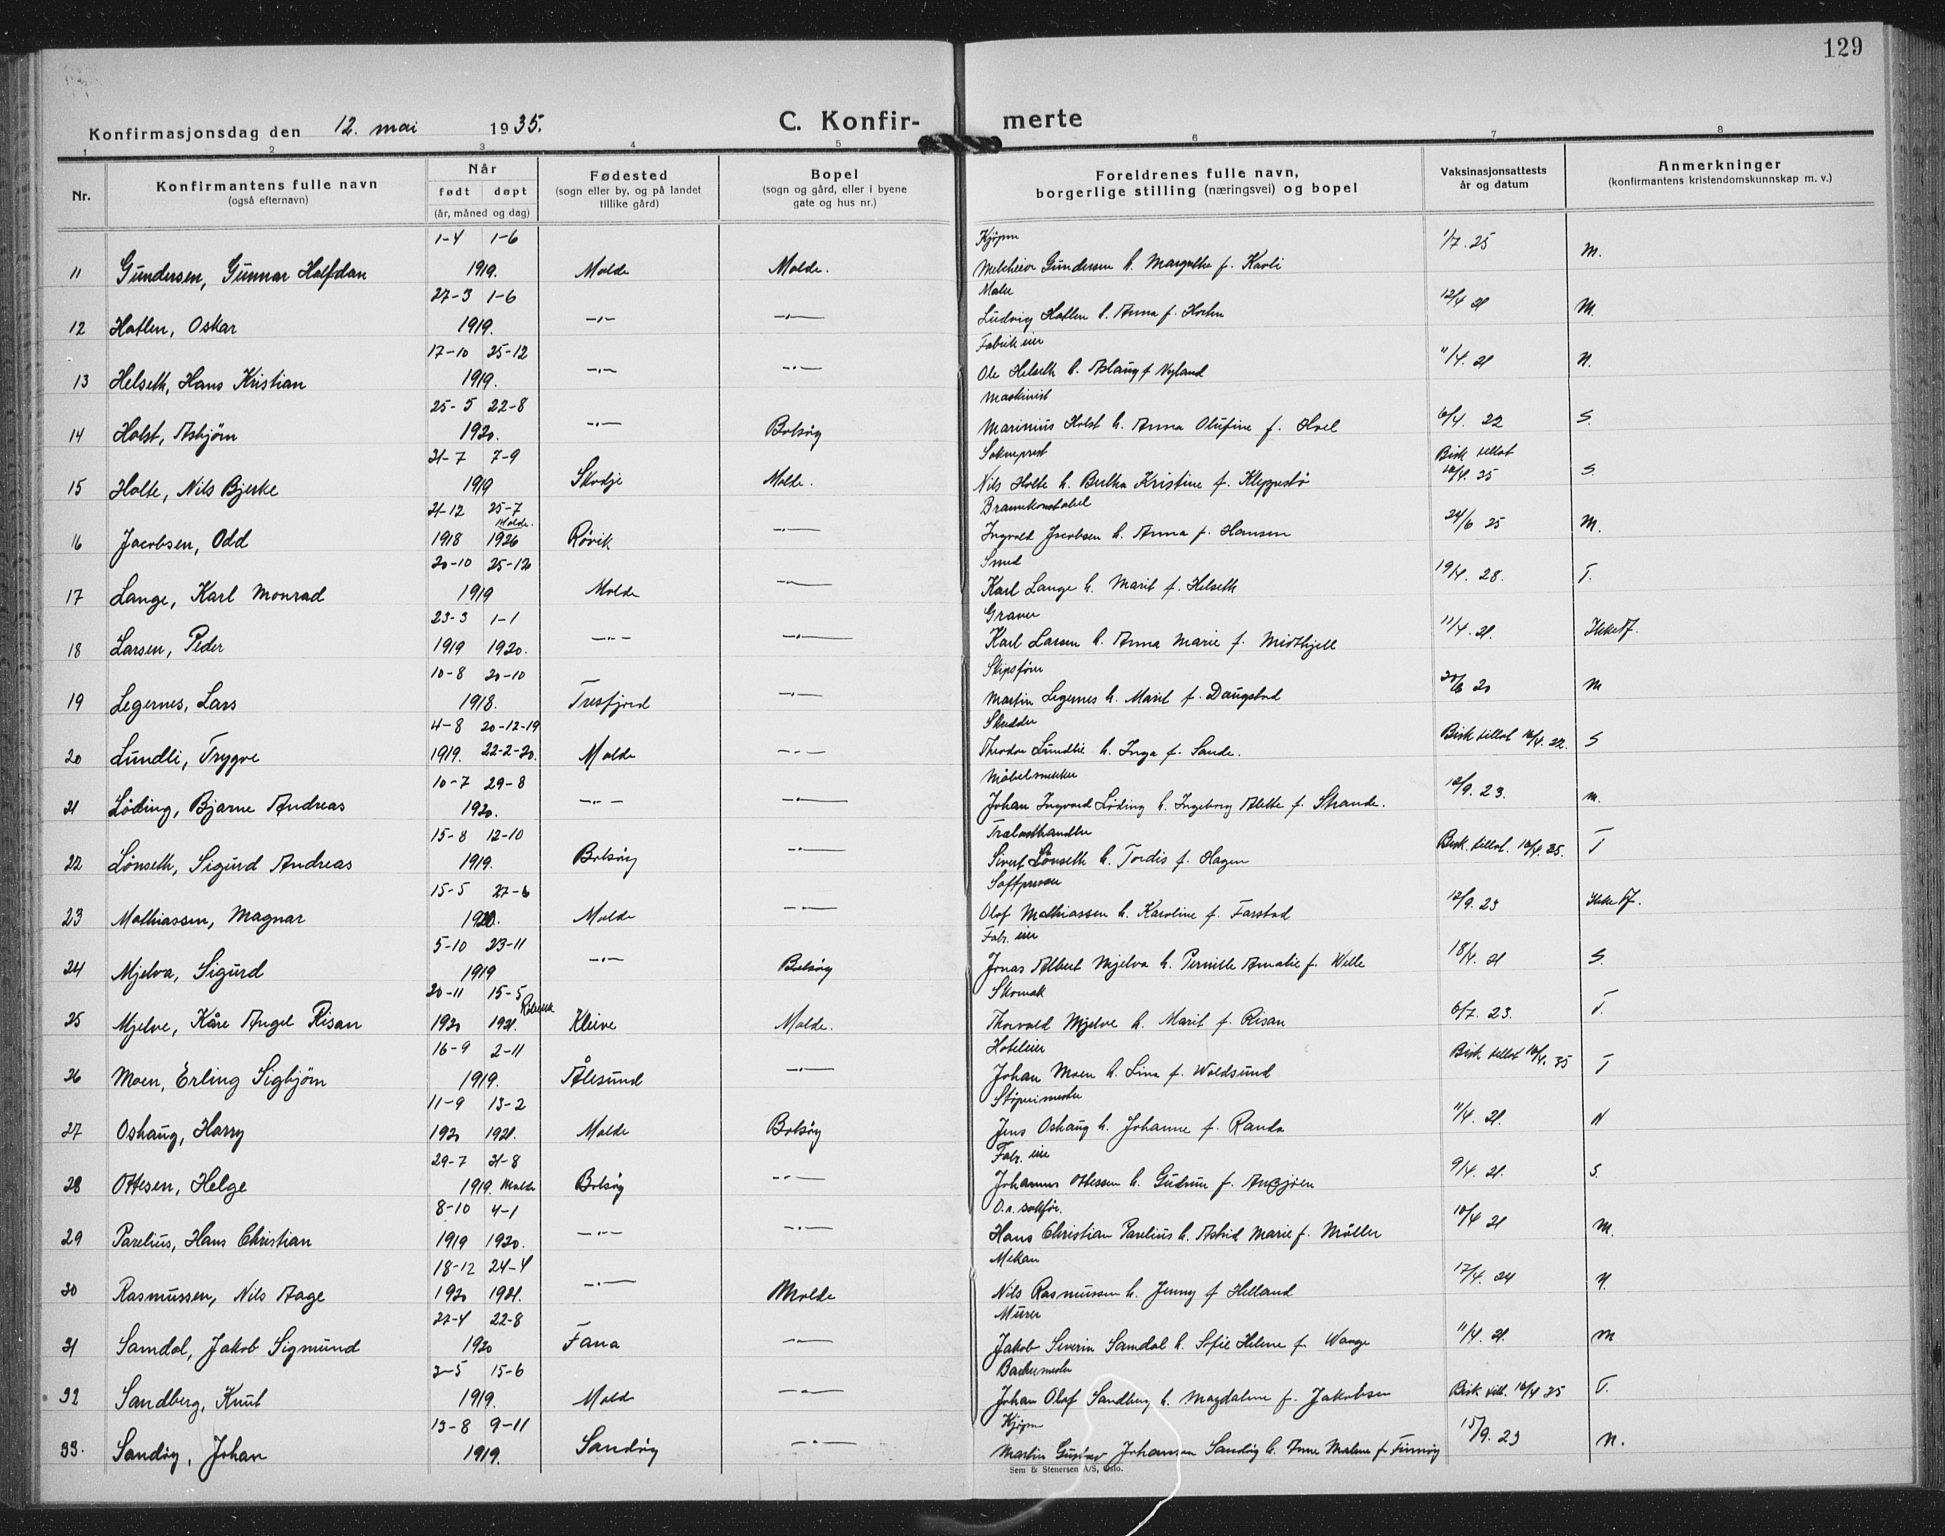 129
Konfirmasjonsdag den 12. mai 1935. C. Konfir- merte
1 2 3 4 5 6 7 8
Nr. Konfirmantens fulle navn (også efternavn) Når født døpt (år, måned og dag) Fødested (sogn eller by, og på landet tillike gård) Bopel (sogn og gård, eller i byene gate og hus nr.) Foreldrenes fulle navn, borgerlige stilling (næringsvei) og bopel Vaksinasjonsattests år og datum Anmerkninger (konfirmantens kristendomskunnskap m. v.)
1-4 1-6 Kjøpm 1/7. 25
11 Gundersen, Gunnar Halfdan 1919. Molde Molde. Melcheior Gundersen h. Margethe f. Kavli M.
27-3 1-6 Maler 12/4 21
12 Hatlen, Oskar 1919. —"— —"— Ludvig Hatlen h. Anna f. Horten M.
17-10 25-12 Fabrik eier 11/4. 21
13 Helseth, Hans Kristian 1919. —"— —"— Ole Helseth h. Aslaug f Nyland N.
25-5 22-8 Maskinist
14 Holst, Asbjørn 1920. —"— Bolsøy Marinius Holst h. Anna Olufine f. Hoel 6/4. 22 S.
21-7 7-9 Sokneprest Bisk tillat
15 Holte, Nils Bjerke 1919 Skodje Molde. Nils Holte h. Bertha Kristine f. Kleppestø 10/4. 35 S.
21-12 25-7 Molde. Brannkonstabel
16 Jacobsen, Odd 1918 1926 Røvik —"— Ingvald Jacobsen h. Anna f. Hansen 24/6 25 M.
20-10 25-12 Smed
17 Lange, Karl Monrad 1919 Molde —"— Karl Lange h. Marit f. Helseth 19/4. 28. T.
23-3 1-1 Graver
18 Larsen, Peder 1919 1920. —"— —"— Karl Larsen h. Anna Marie f. Midthjell 11/4. 21. Ikke
10-8 20-10 Skipsfører
19 Legernes, Lars 1918. Tresfjord —"— Martin Legernes h. Marit f. Daugstad 20 M
4-8 20-12-19 Skredder
20 Lundli, Trygve 1919. 22-2-20. Molde —"— Theodor Lundlie h. Inga f. Sande. Bisk tillat S
10-7 29-8 Møbelsnekker
21 Løding, Bjarne Andreas 1920. —"— —"— Johan Ingvard Løding h. Ingeborg Alette f. Strande. 12/9. 23. M.
15-8 12-10 Trelasthandler
22 Lønseth, Sigurd Andreas 1919. Bolsøy —"— Sivert Lønseth h. Tordis f. Hagen Bisk. tillat. 10/4. 35. T
15-5 27-6
23 Mathiassen, Magnar 1920. Molde —"— Olaf Mathiassen h. Karoline f. Farstad 12/9. 23 Ikke
5-10 23-11 Fabr. eier
24 Mjelva, Sigurd 1919 —"— Bolsøy Jonas Albert Mjelva h. Pernille Amalie f. Welle 18/4. 21 S.
20-11 15-5 Skomak
25 Mjelve, Kåre Angel Risan 1920 1921. Kleive Molde. Thorvald Mjelve h. Marit f. Risan 6/7. 23. T.
16-9 2-11 Hoteleier Bisk tillat 10/4. 35
26 Moen, Erling Sigbjørn 1919. Ålesund —"— Johan Moen h. Lina f. Woldsund T
11-9 13-2 Støperimester
27 Oshaug, Harry 1920 1921. Molde Bolsøy Jens Oshaug h. Johanne f. Randa 11/4. 21. N
29-7 31-8 Fabr. eier
28 Ottesen, Helge 1919. Molde Bolsøy —"— Johannes Ottessen h. Gudrun f. 9/4. 21. S.
8-10 4-1 O.r. sakfør.
29 Parelius, Hans Christian 1919 1920. —"— —"— Hans Christian Parelius h. Astrid Marie f. Møller 10/4 21 M.
18-12 24-4 Mekan
30 Rasmussen, Nils Aage 1920 1921. —"— Molde Nils Rasmussen h. Jenny f Helland 17/4. 24 N.
22-4 22-8 Murer
31 Samdal, Jakob Sigmund 1920 Fana —"— Jakob Severin Samdal h. Sofie Helene f. Waage 11/4. 21. M
2-5 15-6 Bakermester
32 Sandberg, Knut 1919. Molde —"— Johan Olaf Sandberg h. Magdalene f. Jakobsen Bisk till. 10/4 35 T.
13-8 9-11 Kjøpm
33. Sandøy, Johan 1919. Sandøy —"— Martin Gustav Johansen Sandøy h. Anne Malene f. Finnøy 15/9. 23 N.
Sem & Stenersen A/S, Oslo.